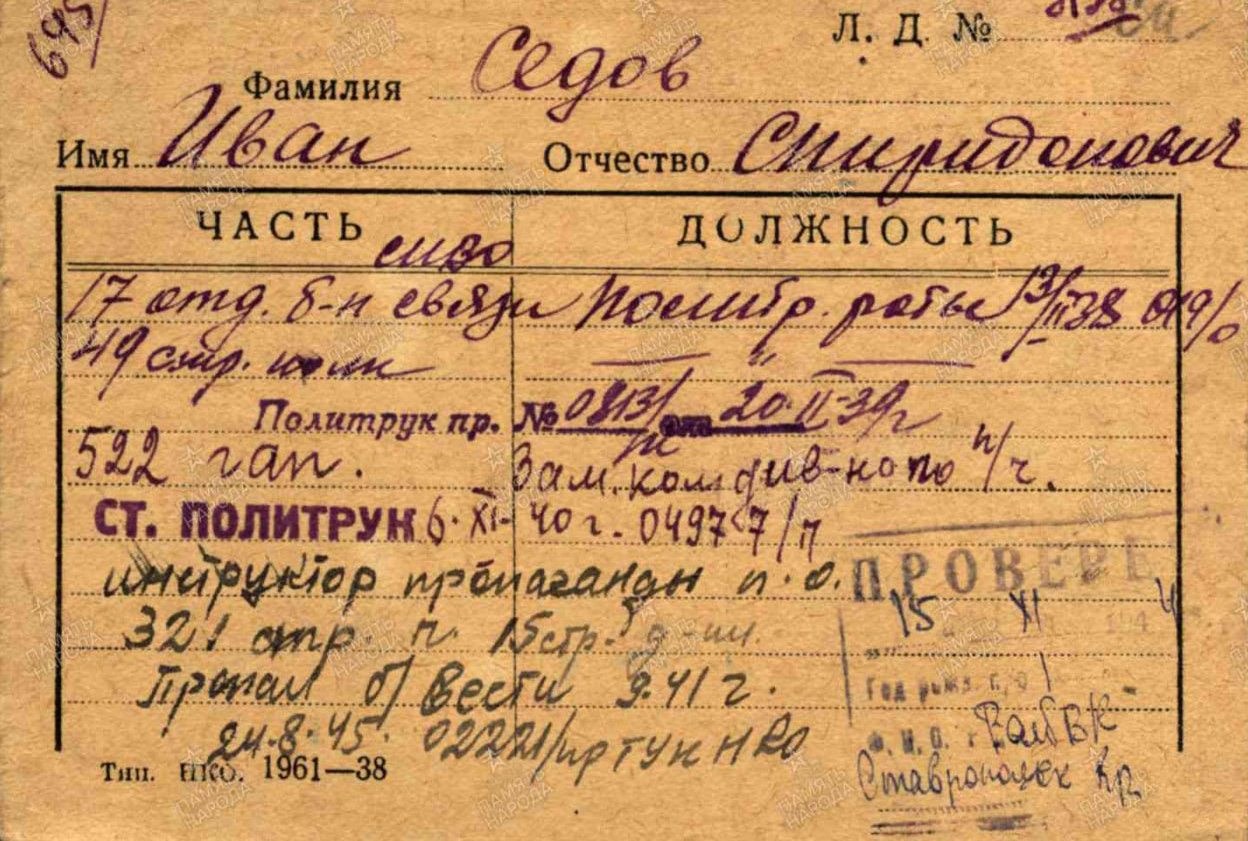 695/
Л. Д. №
Фамилия Седов
Имя Иван Отчество Спиридонович
ЧАСТЬ ДОЛЖНОСТЬ
17 отд. б-н связи Политр. роты 13/II 38
49 стр. полк — " —
Политрук пр. № 0813/п 20.II-39г
522 гап. Зам. ком. див-на по п/ч.
СТ. ПОЛИТРУК 6.XI-40г. 04977/п
инструктор пропаганды п.о.
321 стр. п. 15 стр. д-ии.
Пропал б/вести 9.41г.
24.8.45. 02221/пр ГУК НКО
ПРОВЕРЕ
15 XI 194
Год рожд.
Ф. И. О.
Ставропольск кр
Тип. НКО. 1961—38